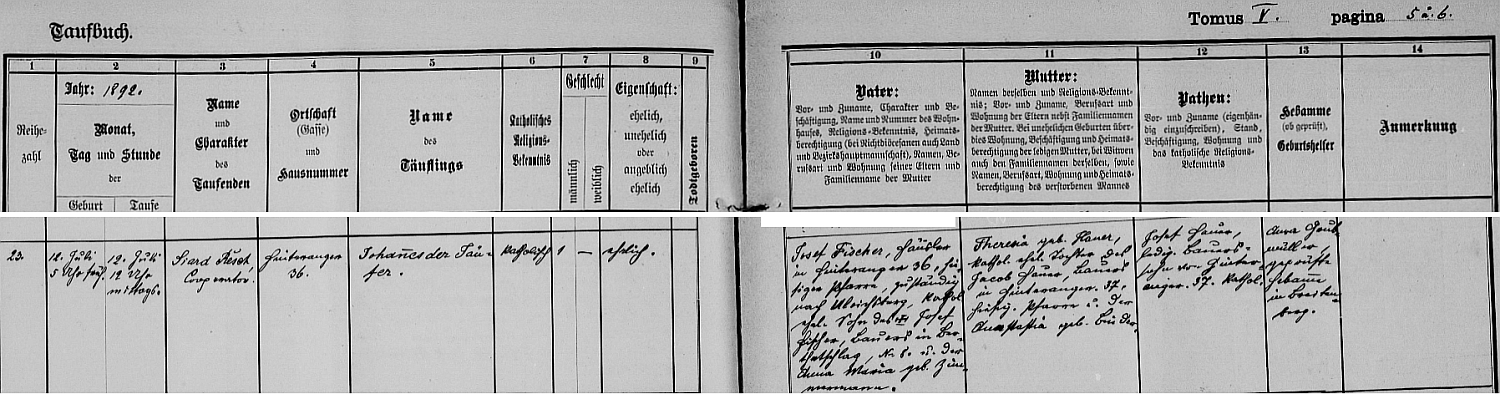 Taufbuch.
Tomus V. pagina 5 u. 6.
1 2 3 4 5 6 7 8 9 10 11 12 13 14
Reihe-
zahl
Jahr: 1892.
Monat,
Tag und Stunde
der
Geburt Taufe
Name
und
Charakter
des
Taufenden
Ortschaft
(Gasse)
und
Hausnummer
Name
des
Täuflings
Katholisches
Religions-
Bekenntnis
Geschlecht
männlich
weiblich
Eigenschaft:
ehelich,
unehelich
oder
angeblich
ehelich
Todtgeboren
Vater:
Vor- und Zuname, Charakter und Be-
schäftigung, Name und Nummer des Wohn-
hauses, Religions-Bekenntnis, Heimats-
berechtigung (bei Nichtdiöcesanen auch Land
und Bezirkshauptmannschaft), Namen, Be-
rufsart und Wohnung seiner Eltern und
Familienname der Mutter
Mutter:
Namen derselben und Religions-Bekennt-
nis; Vor- und Zuname, Berufsart und
Wohnung der Eltern nebst Familiennamen
der Mutter. Bei unehelichen Geburten über-
dies Wohnung, Beschäftigung und Heimats-
berechtigung der ledigen Mutter, bei Witwen
auch den Familiennamen derselben, sowie
Namen, Berufsart, Wohnung und Heimats-
berechtigung des verstorbenen Mannes
Pathen:
Vor- und Zuname (eigenhän-
dig einzuschreiben), Stand,
Beschäftigung, Wohnung und
das katholische Religions-
Bekenntnis
Hebamme
(ob geprüft),
Geburtshelfer
Anmerkung
23.
12. Juli
5 Uhr früh.
12. Juli
12 Uhr
mittags.
Siard
Cooperator.
Hinteranger
36.
Johannes der Täu-
fer.
katholisch
1
—
ehelich.
Josef Fischer, Häusler
in Hinteranger 36, hie-
siger Pfarre, zuständig
nach Ulrichsberg, kathol.
ehel. Sohn des Josef
Fischer, Bauers in Ber-
detschlag, N. 8. u. der
Anna Maria geb. Zim-
mermann.
Theresia geb. Hauer,
kathol. ehel. Tochter des
Jacob Hauer, Bauers
in Hinteranger. 37,
hiesig. Pfarre u. der
Anastasia geb. Binder.
Josef Hauer,
ledig. Bauers-
sohn von Hinter-
anger. 37. Kathol.
Anna
müller,
geprüfte
Hebame
in Breiten-
berg.